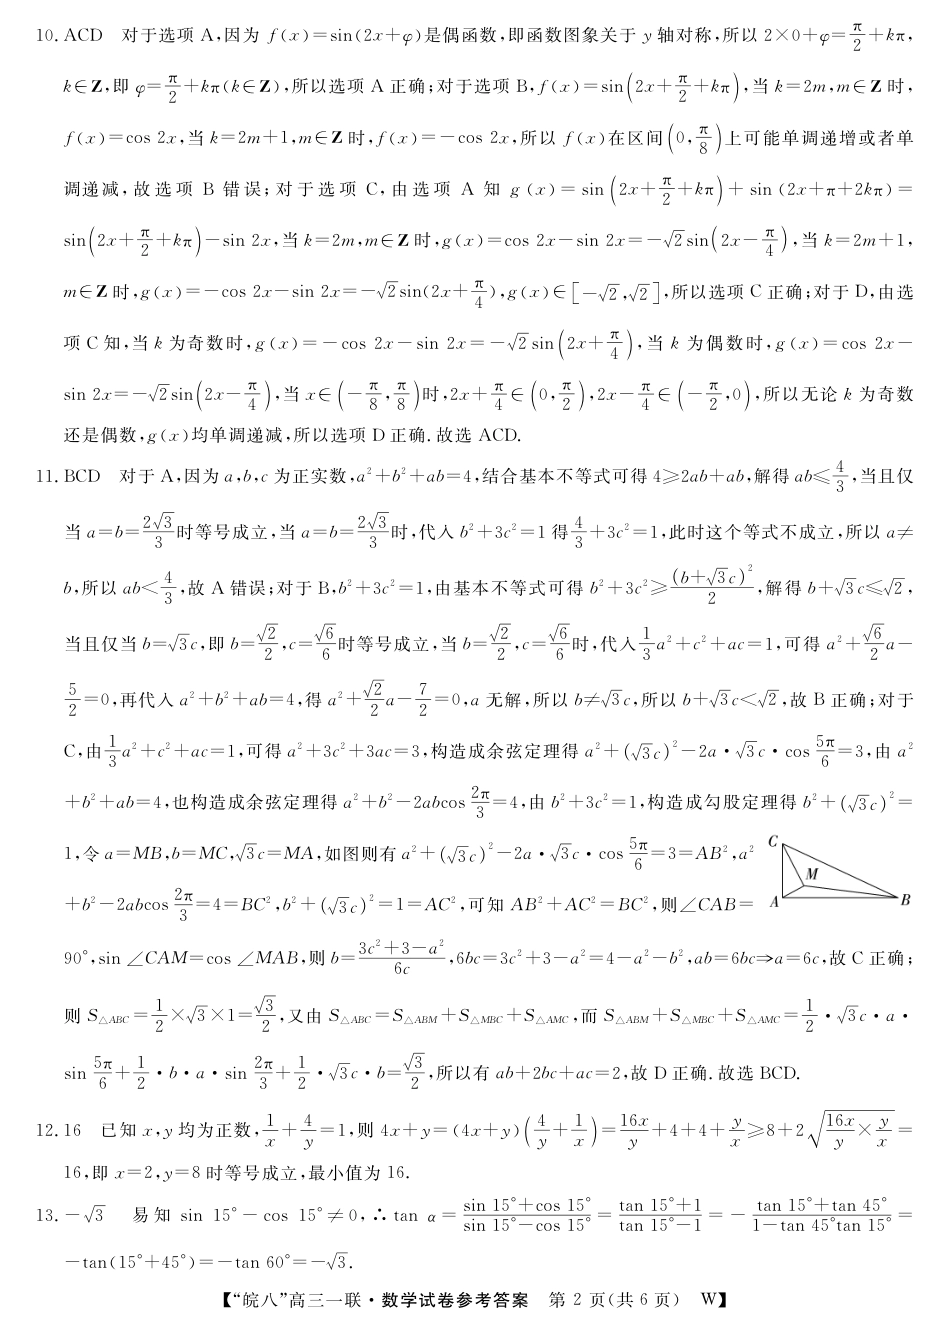 10. ACD　对于选项 A,因为 f(x)=sin(2x+φ)是偶函数,即函数图象关于 y 轴对称,所以 2×0+φ=π/2+kπ,
k∈Z,即 φ=π/2+kπ(k∈Z),所以选项 A 正确;对于选项 B,f(x)=sin(2x+π/2+kπ),当 k=2m,m∈Z 时,
f(x)=cos 2x,当 k=2m+1,m∈Z 时,f(x)=-cos 2x,所以 f(x)在区间(0,π/8)上可能单调递增或者单
调递减,故选项 B 错误;对于选项 C,由选项 A 知 g(x)=sin(2x+π/2+kπ)+sin(2x+π+2kπ)=
sin(2x+π/2+kπ)-sin 2x,当 k=2m,m∈Z 时,g(x)=cos 2x-sin 2x=-√2sin(2x-π/4),当 k=2m+1,
m∈Z 时,g(x)=-cos 2x-sin 2x=-√2sin(2x+π/4),g(x)∈[-√2,√2],所以选项 C 正确;对于 D,由选
项 C 知,当 k 为奇数时,g(x)=-cos 2x-sin 2x=-√2sin(2x+π/4),当 k 为偶数时,g(x)=cos 2x-
sin 2x=-√2sin(2x-π/4),当 x∈(-π/8,π/8)时,2x+π/4∈(0,π/2),2x-π/4∈(-π/2,0),所以无论 k 为奇数
还是偶数,g(x)均单调递减,所以选项 D 正确.故选 ACD.
11. BCD　对于 A,因为 a,b,c 为正实数,a²+b²+ab=4,结合基本不等式可得 4≥2ab+ab,解得 ab≤4/3,当且仅
当 a=b=2√3/3时等号成立,当 a=b=2√3/3时,代入 b²+3c²=1 得4/3+3c²=1,此时这个等式不成立,所以 a≠
b,所以 ab<4/3,故 A 错误;对于 B,b²+3c²=1,由基本不等式可得 b²+3c²≥(b+√3c)²/2,解得 b+√3c≤√2,
当且仅当 b=√3c,即 b=√2/2,c=√6/6时等号成立,当 b=√2/2,c=√6/6时,代入1/3a²+c²+ac=1,可得 a²+√6/2a-
5/2=0,再代入 a²+b²+ab=4,得 a²+√2/2a-7/2=0,a 无解,所以 b≠√3c,所以 b+√3c<√2,故 B 正确;对于
C,由1/3a²+c²+ac=1,可得 a²+3c²+3ac=3,构造成余弦定理得 a²+(√3c)²-2a·√3c·cos 5π/6=3,由 a²
+b²+ab=4,也构造成余弦定理得 a²+b²-2abcos 2π/3=4,由 b²+3c²=1,构造成勾股定理得 b²+(√3c)²=
1,令 a=MB,b=MC,√3c=MA,如图则有 a²+(√3c)²-2a·√3c·cos 5π/6=3=AB²,a²
+b²-2abcos 2π/3=4=BC²,b²+(√3c)²=1=AC²,可知 AB²+AC²=BC²,则∠CAB=
C
M
A
B
90°,sin∠CAM=cos∠MAB,则 b=(3c²+3-a²)/6c,6bc=3c²+3-a²=4-a²-b²,ab=6bc⇒a=6c,故 C 正确;
则 S△ABC=1/2×√3×1=√3/2,又由 S△ABC=S△ABM+S△MBC+S△AMC,而 S△ABM+S△MBC+S△AMC=1/2·√3c·a·
sin 5π/6+1/2·b·a·sin 2π/3+1/2·√3c·b=√3/2,所以有 ab+2bc+ac=2,故 D 正确.故选 BCD.
12. 16　已知 x,y 均为正数,1/x+4/y=1,则 4x+y=(4x+y)(4/y+1/x)=16x/y+4+4+y/x≥8+2√(16x/y×y/x)=
16,即 x=2,y=8 时等号成立,最小值为 16.
13. -√3　易知 sin 15°-cos 15°≠0,∴tan α=(sin 15°+cos 15°)/(sin 15°-cos 15°)=(tan 15°+1)/(tan 15°-1)=-(tan 15°+tan 45°)/(1-tan 45°tan 15°)=
-tan(15°+45°)=-tan 60°=-√3.
【“皖八”高三一联·数学试卷参考答案　第 2 页(共 6 页)　W】